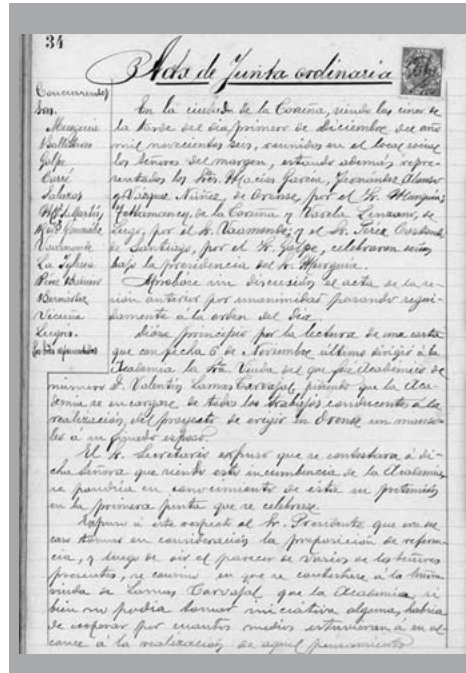 34
Acta de Junta ordinaria
Concurrentes
Sres.
Murguía
Ballesteros
Golpe
Carré
Salazar
Mtz. Martís
Rey González
Vaamonde
La Iglesia
Pérez Ba
Bernardez
Vicuña
Lugrís.
En la ciudad de la Coruña, siendo las cinco de
la tarde del día primero de diciembre del año
mil novecientos seis, reunidos en el local social
los señores del margen, estando además repre-
sentados los Sres. Macías García, Fernández Alonso
y Vázquez Núñez, de Orense, por el Sr. Murguía;
de la Coruña y Varela Lenzano, de
Lugo, por el Sr. Vaamonde; y el Sr. Pérez Costanti
de Santiago, por el Sr. Golpe, celebraron sesión
bajo la presidencia del Sr. Murguía.
Apróbase sin discusión el acta de la se-
sión anterior por unanimidad pasando segui-
damente á la orden del día.
Dióse principio por la lectura de una carta
que con fecha 6 de Noviembre último dirigió á la
Academia la Sra. Viuda del que fué Académico de
número D. Valentín Lamas Carvajal pidiendo que la Aca-
demia se encargase de todos los trabajos conducentes á la
realización del proyecto de erigir en Orense un mauso-
leo á su finado esposo.
El Sr. Secretario expuso que se contestara á di-
cha señora que siendo esto incumbencia de la Academia,
se pondría en conocimiento de ésta su pretensión
en la primera junta que se celebrase.
Expuso á este respecto el Sr. Presidente que era de
caso tomar en consideración la proposición de referen-
cia, y luego de oir el parecer de varios de los señores
presentes, se convino en que se contestase á la Señora
viuda de Lamas Carvajal que la Academia, si
bien no podía tomar iniciativa alguna, habría
de cooperar por cuantos medios estuvieran á su al-
cance á la realización de aquel pensamiento.